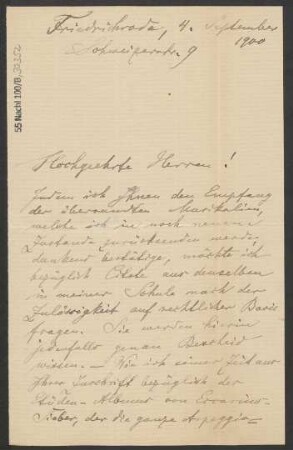 Friedrichroda, 4. September
Schweizerstr. 9 1900
55 Nachl 100/B,
Hochgeehrte Herren!
Indem ich Ihnen den Empfang
der übersandten Musikalien,
welche ich in noch neuem
Zustande zurücksenden werde
dankend bestätige, möchte ich
bezüglich aus denselben
in meiner Schule nach der
Zulässigkeit auf rechtlicher Basis
fragen. Sie werden hierin
jedenfalls genau Bescheid
wissen. — Wie ich seiner Zeit aus
Ihrer Zuschrift bezüglich der
Etüden-Albums von
Sieber, der die ganze Arpeggio-